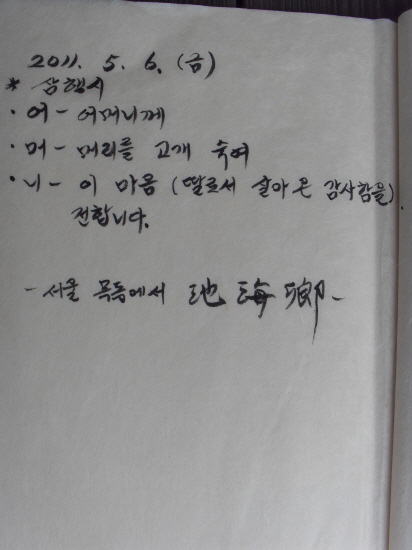 2011. 5. 6. (금)
* 삼행시
· 어 - 어머니께
· 머 - 머리를 고개 숙여
· 니 - 이 마음 (딸로서 살아온 감사함을)
전합니다.
- 서울 목동에서 池海鄕 -